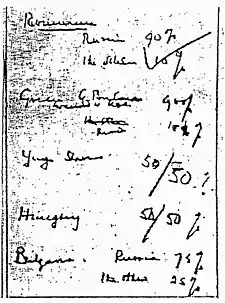 Roumania
Russia 90%
The others 10%
Greece G. Britain 90%
Russia 10%
Yugoslavia 50/50 %
Hungary 50/50 %
Bulgaria Russia 75%
The others 25%